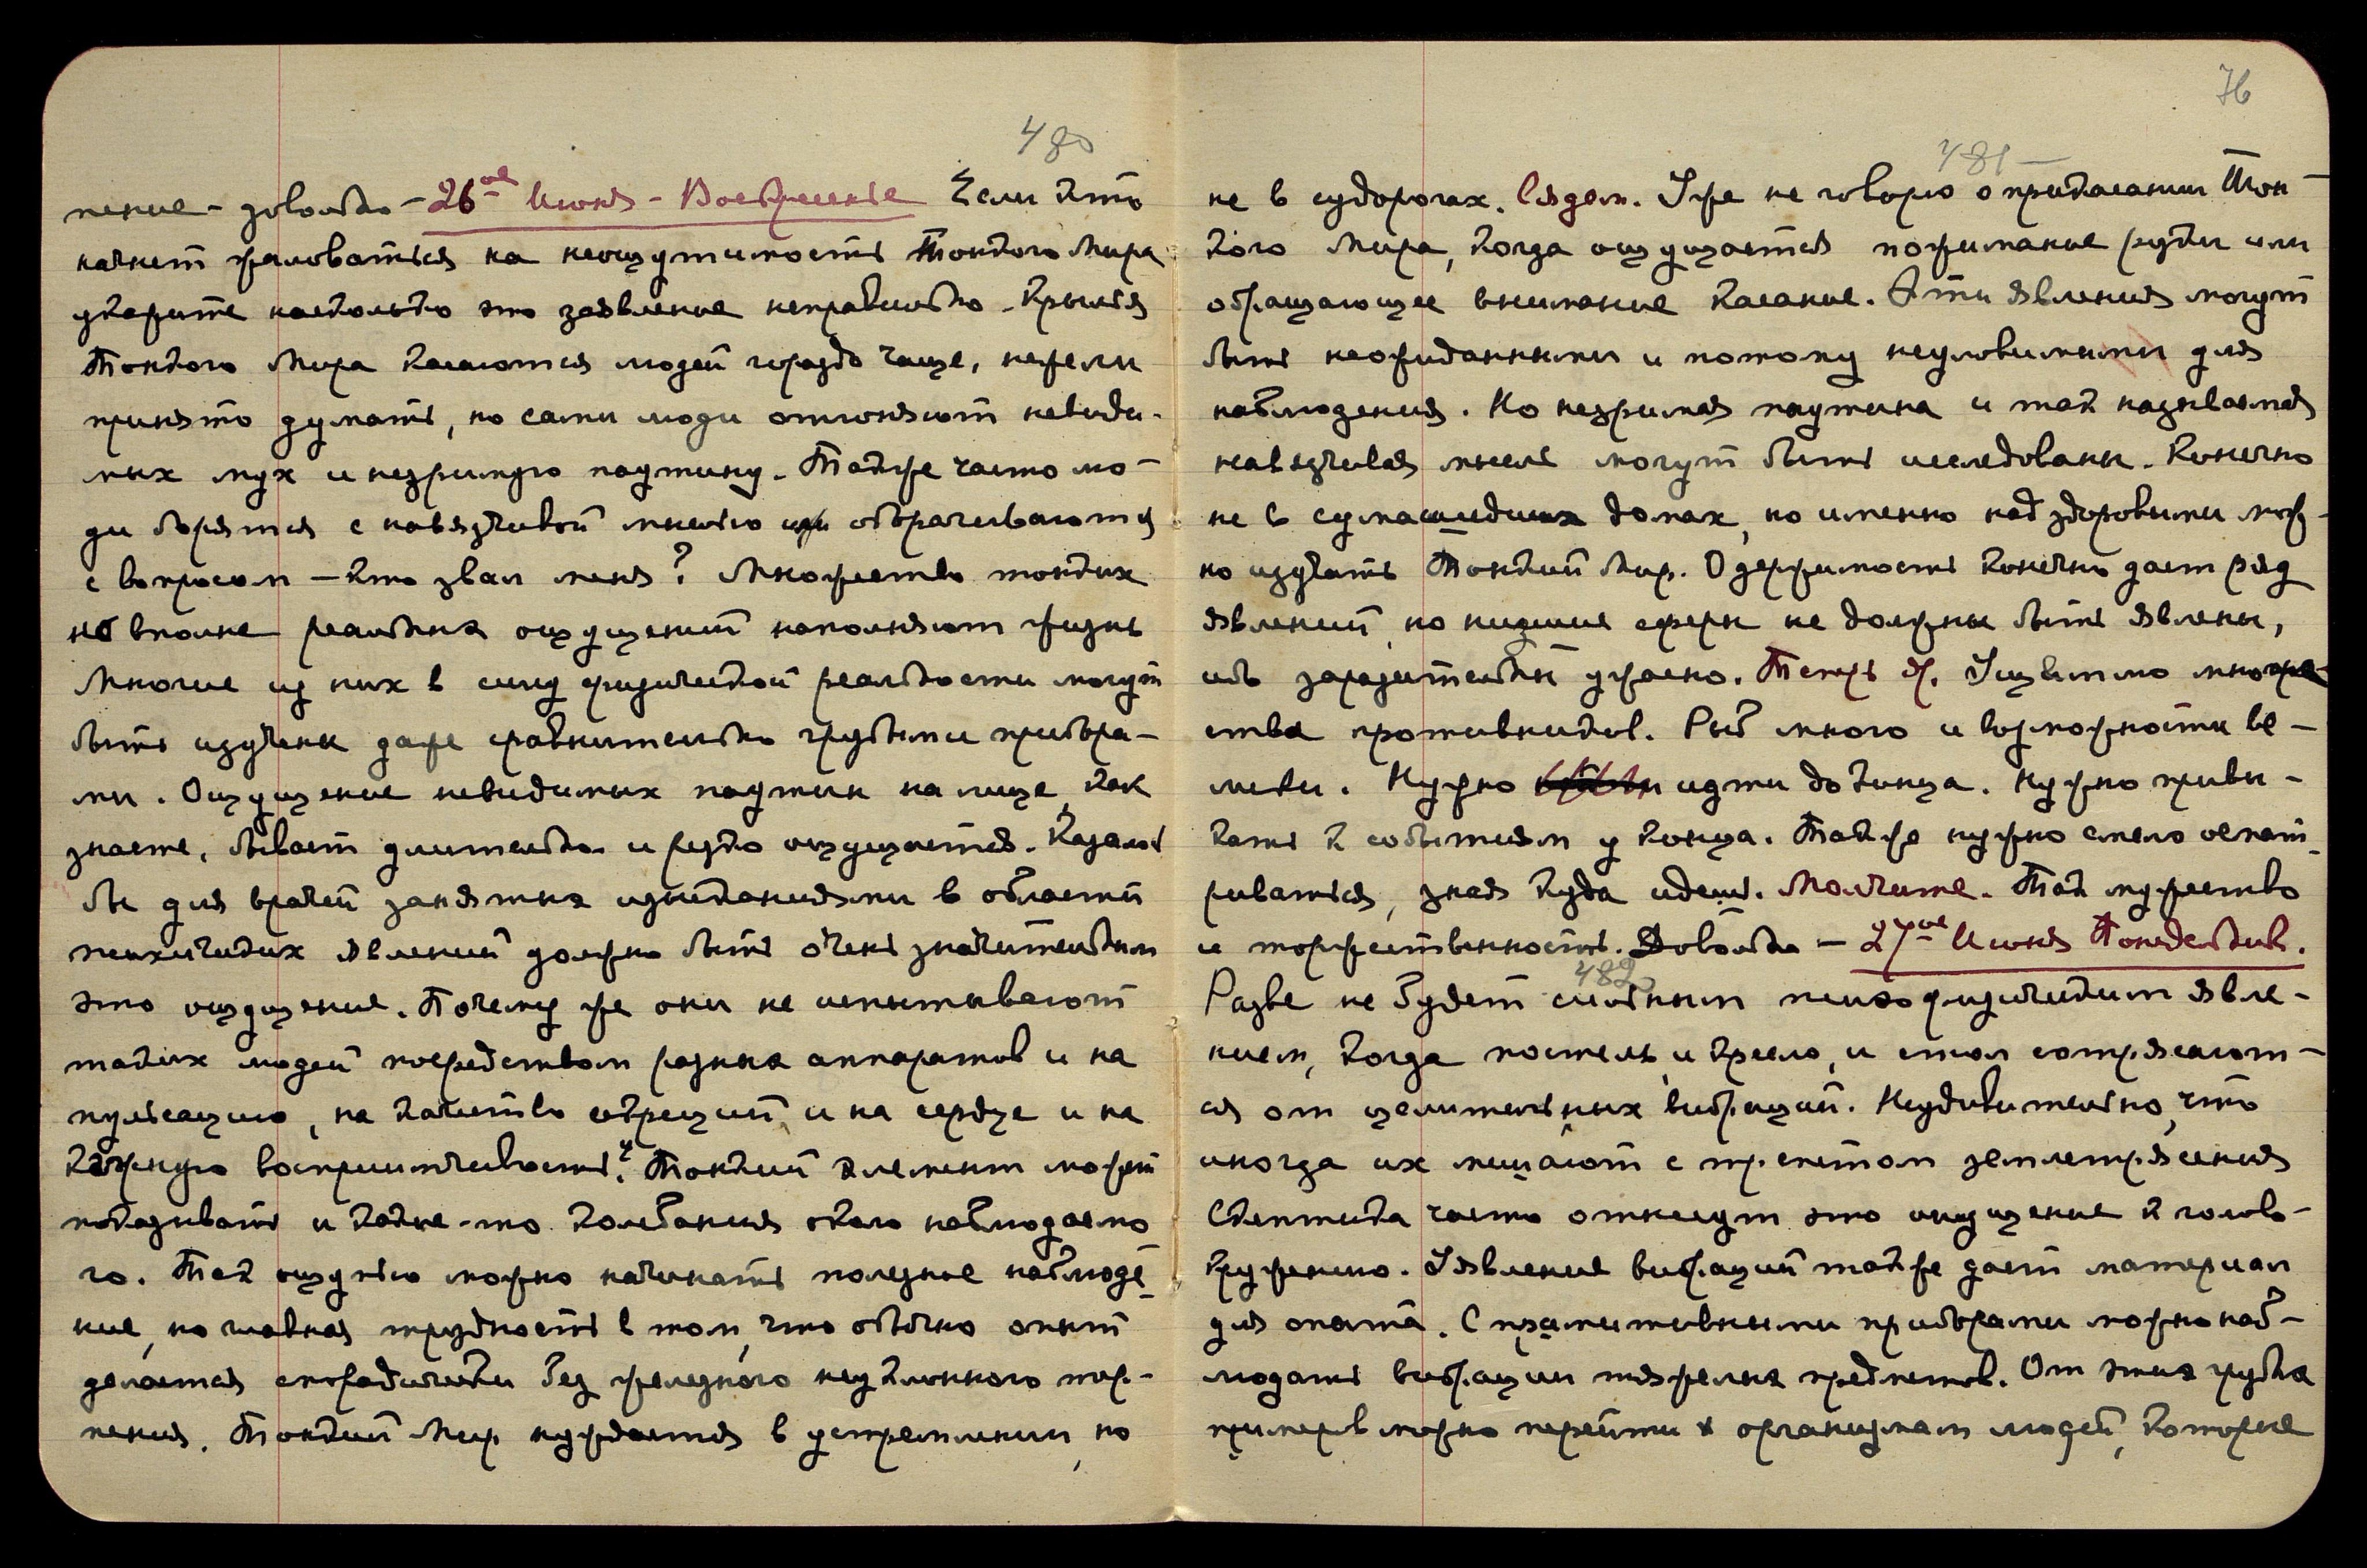 480
пение – довольно – 26ое Июня – Воскресенье Если кто
начнет жаловаться на неощутимость Тонкого Мира
укажите насколько это заявление неправильно. Крылья
Тонкого Мира касаются людей гораздо чаще, нежели
принято думать, но сами люди отгоняют невиди-
мых мух и незримую паутину. Также часто лю-
ди борятся с навязчивой мыслью или оборачиваются
с вопросом – кто звал меня? Множество тонких
но вполне реальных ощущений наполняют жизнь
Многие из них в силу физической реальности могут
быть изучены даже сравнительно грубыми прибора-
ми. Ощущение невидимых паутин на лице, как
знаете, бывает длительно и резко ощущается. Казалось
бы для врачей занятых изысканиями в области
психических явлений должно быть очень значительным
это ощущение. Почему же они не испытывают
таких людей посредством разных аппаратов и на
пульсацию, на качество секреций и на сердце и на
кожную восприимчивость? Тонкий элемент может
показывать и какие-то колебания около наблюдаемо
го. Так ощупью можно начинать полезное наблюде
ние, но главная трудность в том, что обычно опыт
делается спорадически без железного неуклонного тер-
пения. Тонкий Мир нуждается в устремлении, но
76
481
не в судорогах. Сядем. Уже не говорю о прикасании Тон
кого Мира, когда ощущается пожимание руки или
обращающее внимание касание. Эти явления могут
быть неожиданными и потому неуловимыми для
наблюдения. Но незримая паутина и так называемая
навязчивая мысль могут быть исследованы. Конечно
не в сумасшедших домах, но именно над здоровыми мож-
но изучать Тонкий Мир. Одержимость конечно дает ряд
явлений, но низшие сферы не должны быть явлены,
ибо заразительны ужасно. Теперь др. Ущемлю множе
ства противников. Рыб много и возможности ве-
лики. Нужно идти до конца. Нужно привы-
кать к событиям у конца. Также нужно смело всмат
риваться, зная куда идешь. Молчите. Так мужество
и торжественность. Довольно – 27ое Июня Понедельник.
482
Разве не будет сильным психофизическим явле-
нием, когда постель, и кресло, и стол сотрясают-
ся от целительных вибраций. Неудивительно, что
иногда их мешают с трепетом землетрясения
Скептики часто отнесут это ощущение к голово-
кружению. Уявление вибраций также дает материал
для опыта. С примитивными приборами можно наб-
людать вибрации тяжелых предметов. От этих грубых
примеров можно перейти к организмам людей, которые